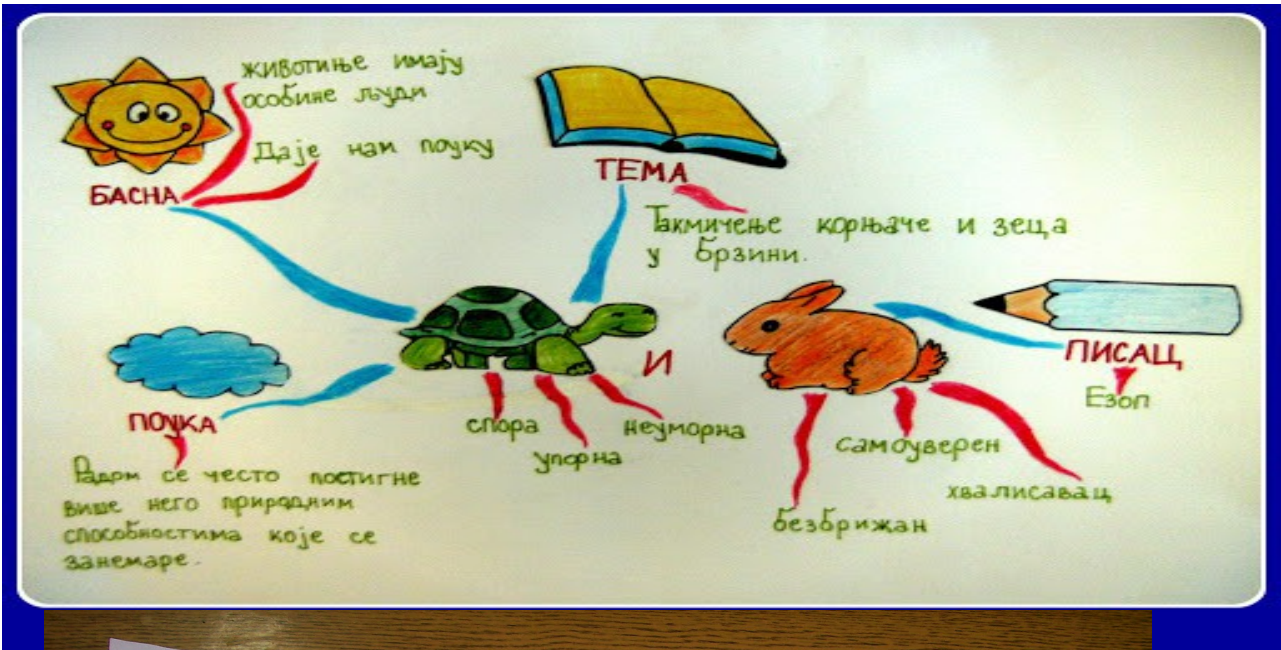 животиње имају
особине људи
Даје нам поуку
БАСНА
ТЕМА
Такмичење корњаче и зеца
у брзини.
И
ПИСАЦ
Езоп
ПОУКА
Радом се често постигне
више него природним
способностима које се
занемаре.
спора
упорна
неуморна
самоуверен
хвалисавац
безбрижан